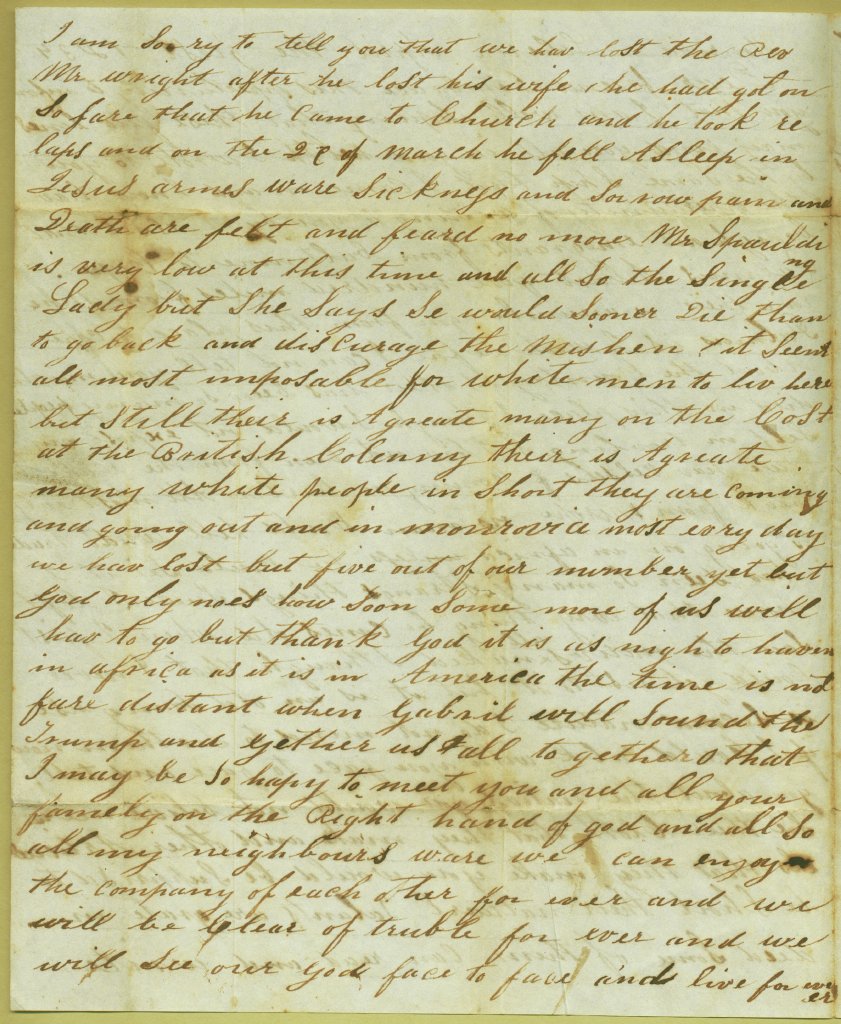 I am Sorry to tell you that we hav lost the Rev
Mr wright after he lost his wife he had got on
So fare that he Came to Church and he took re
laps and on the 2 of march he fell ASleep in
Jesus armes ware Sickness and Sorrow pain and
Death are felt and feard no more Mr Spaulding
is very low at this time and all So the Single
Lady but She Says Se would Sooner Die than
to go back and discurage the mishen it Seems
all most imposable for white men to liv here
but Still their is A greate many on the Cost
at the British Colenny their is A greate
many white people in Short they are coming
and going out and in monrovia most evry day
we hav lost but five out of our number yet but
God only noes how Soon Some more of us will
hav to go but thank God it is as nigh to haven
in africa as it is in America the time is not
fare distant when Gabril will Sound the
Trump and gether us all to gether O that
I may be So hapy to meet you and all your
famely on the Right hand of god and all So
all my neighbours ware we can enjoy
the company of each other for ever and we
will be Clear of truble for ever and we
will See our God face to face and live for ever